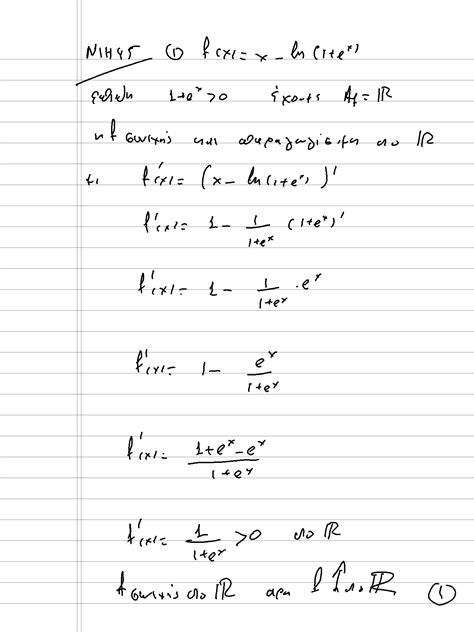 ΝΙΗ45 ① f(x) = x - ln(1+e^x)
επειδή 1+e^x > 0 έχουμε A_f = ℝ
η f συνεχής και παραγωγίσιμη στο ℝ
f'(x) = (x - ln(1+e^x))'
f'(x) = 1 - \frac{1}{1+e^x} (1+e^x)'
f'(x) = 1 - \frac{1}{1+e^x} · e^x
f'(x) = 1 - \frac{e^x}{1+e^x}
f'(x) = \frac{1+e^x-e^x}{1+e^x}
f'(x) = \frac{1}{1+e^x} > 0 στο ℝ
f συνεχής στο ℝ άρα f ↑ στο ℝ ①